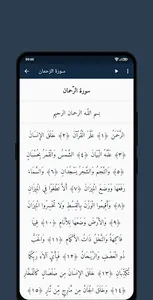 سورة الرحمان
سورة الرَّحمان
بسم اللّه الرحمان الرحيم
الرَّحْمَنُ ﴿١﴾ عَلَّمَ الْقُرْآنَ ﴿٢﴾ خَلَقَ الْإِنْسَانَ
﴿٣﴾ عَلَّمَهُ الْبَيَانَ ﴿٤﴾ الشَّمْسُ وَالْقَمَرُ بِحُسْبَانٍ
﴿٥﴾ وَالنَّجْمُ وَالشَّجَرُ يَسْجُدَانِ ﴿٦﴾ وَالسَّمَاءَ
رَفَعَهَا وَوَضَعَ الْمِيزَانَ ﴿٧﴾ أَلَّا تَطْغَوْا فِي الْمِيزَانِ
﴿٨﴾ وَأَقِيمُوا الْوَزْنَ بِالْقِسْطِ وَلَا تُخْسِرُوا الْمِيزَانَ
﴿٩﴾ وَالْأَرْضَ وَضَعَهَا لِلْأَنَامِ ﴿١٠﴾ فِيهَا
فَاكِهَةٌ وَالنَّخْلُ ذَاتُ الْأَكْمَامِ ﴿١١﴾ وَالْحَبُّ
ذُو الْعَصْفِ وَالرَّيْحَانُ ﴿١٢﴾ فَبِأَيِّ آلَاءِ رَبِّكُمَا
تُكَذِّبَانِ ﴿١٣﴾ خَلَقَ الْإِنْسَانَ مِنْ صَلْصَالٍ كَالْفَخَّارِ